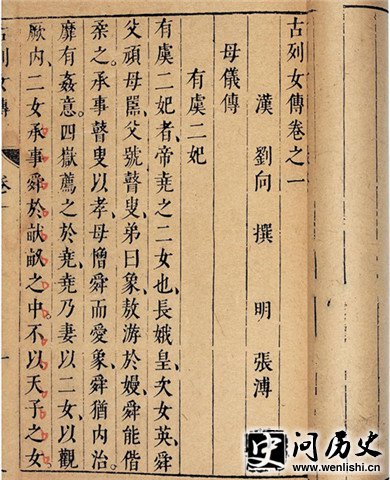 古列女傳卷之一
漢 劉向 撰 明 張溥
母儀傳
有虞二妃
有虞二妃者、帝堯之二女也、長娥皇、次女英、舜
父頑母嚚、父號瞽叟、弟曰象、敖游於嫚、舜能偕
柔之、承事瞽叟以孝、母憎舜而愛象、舜猶內治、
靡有姦意。四嶽薦之於堯、堯乃妻以二女、以觀
厥內、二女承事舜於畎畝之中、不以天子之女
古列女傳 卷一 一
问历史
www.wenlishi.cn